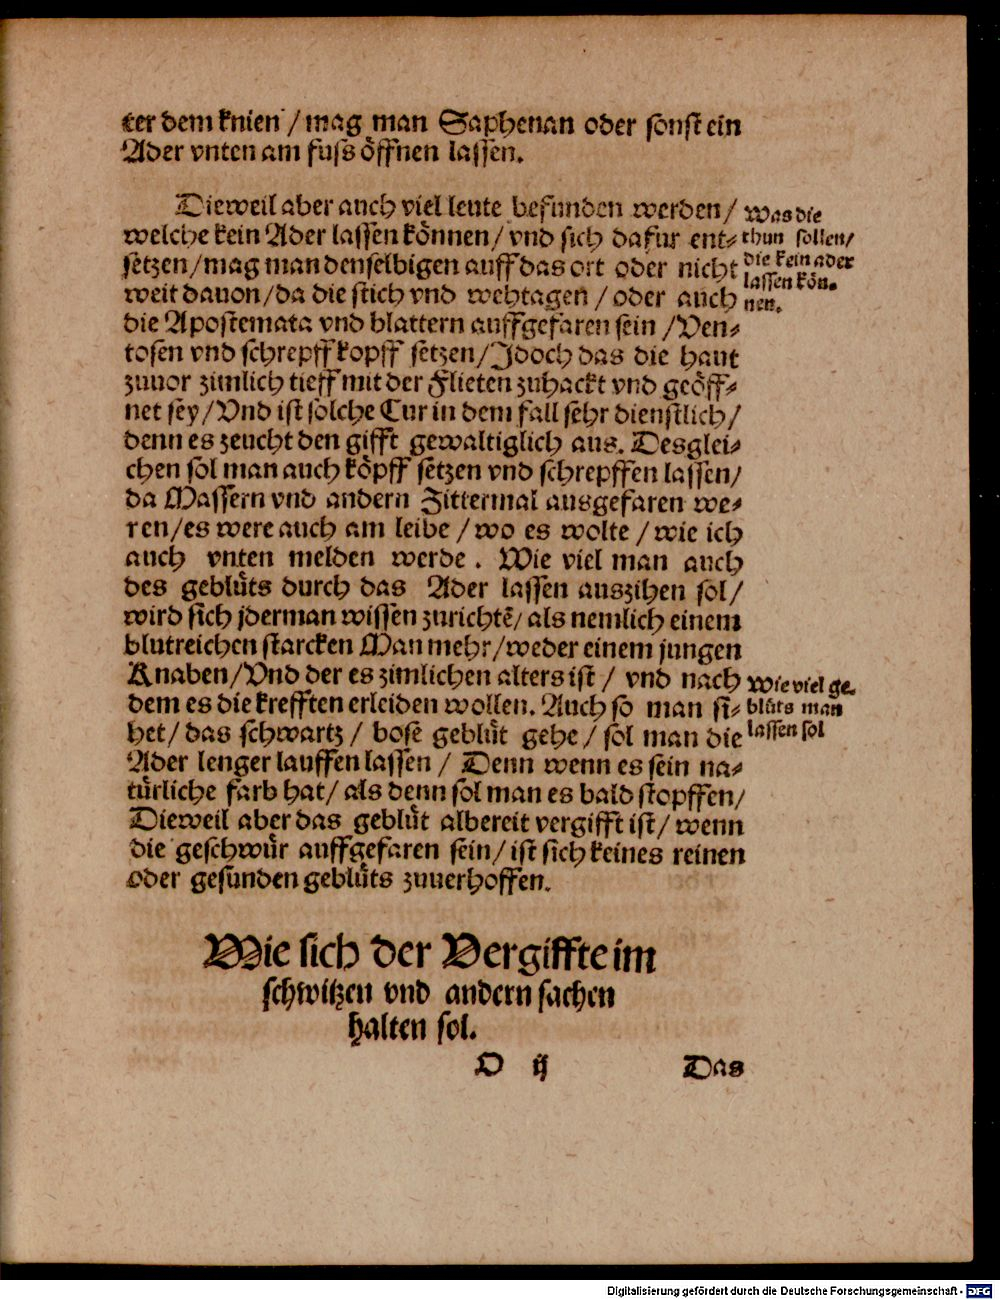 ter dem knien / mag man Saphenan oder sonst ein
Ader vnten am fuss öffnen lassen.
Dieweil aber auch viel leute befunden werden /
welche kein Ader lassen können / vnd sich dafur ent⸗
setzen / mag man denselbigen auff das ort oder nicht
weit dauon / da die stich vnd wehtagen / oder auch
die Apostemata vnd blattern auffgefaren sein / Ven⸗
tosen vnd schrepffkopff setzen / Jdoch das die haut
zuuor zimlich tieff mit der Flieten zuhackt vnd geöff⸗
net sey / Vnd ist solche Cur in dem fall sehr dienstlich /
denn es zeucht den gifft gewaltiglich aus. Desglei⸗
chen sol man auch köpff setzen vnd schrepffen lassen /
da Massern vnd andern Zittermal ausgefaren we⸗
ren / es were auch am leibe / wo es wolte / wie ich
auch vnten melden werde. Wie viel man auch
des geblüts durch das Ader lassen auszihen sol /
wird sich jderman wissen zurichtē / als nemlich einem
blutreichen starcken Man mehr / weder einem jungen
Knaben / Vnd der es zimlichen alters ist / vnd nach
dem es die krefften erleiden wollen. Auch so man si⸗
het / das schwartz / bose geblüt gehe / sol man die
Ader lenger lauffen lassen / Denn wenn es sein na⸗
türliche farb hat / als denn sol man es bald stopffen /
Dieweil aber das geblüt albereit vergifft ist / wenn
die geschwür auffgefaren sein / ist sich keines reinen
oder gesunden geblüts zuuerhoffen.
Was die
thun sollen /
die kein ader
lassen kön⸗
nen.
Wie viel ge⸗
blüts man
lassen sol
Wie sich der Vergiffte im
schwitzen vnd andern sachen
halten sol.
D ij Das
Digitalisierung gefördert durch die Deutsche Forschungsgemeinschaft - DFG